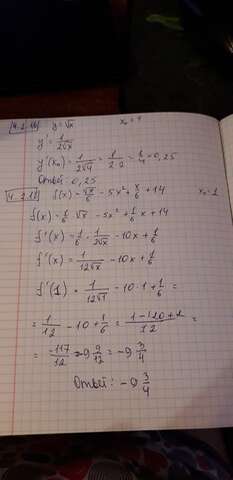 4.2.16 y = √x x₀ = 4
y' = 1/(2√x)
y'(x₀) = 1/(2√4) = 1/(2·2) = 1/4 = 0,25
Ответ: 0,25
4.2.18 f(x) = √x/6 - 5x² + x/6 + 14 x₀ = 1
f(x) = 1/6 √x - 5x² + 1/6 x + 14
f'(x) = 1/6 · 1/(2√x) - 10x + 1/6
f'(x) = 1/(12√x) - 10x + 1/6
f'(1) = 1/(12√1) - 10·1 + 1/6 =
= 1/12 - 10 + 1/6 = (1 - 120 + 2)/12 =
= -117/12 = -9 9/12 = -9 3/4
Ответ: -9 3/4